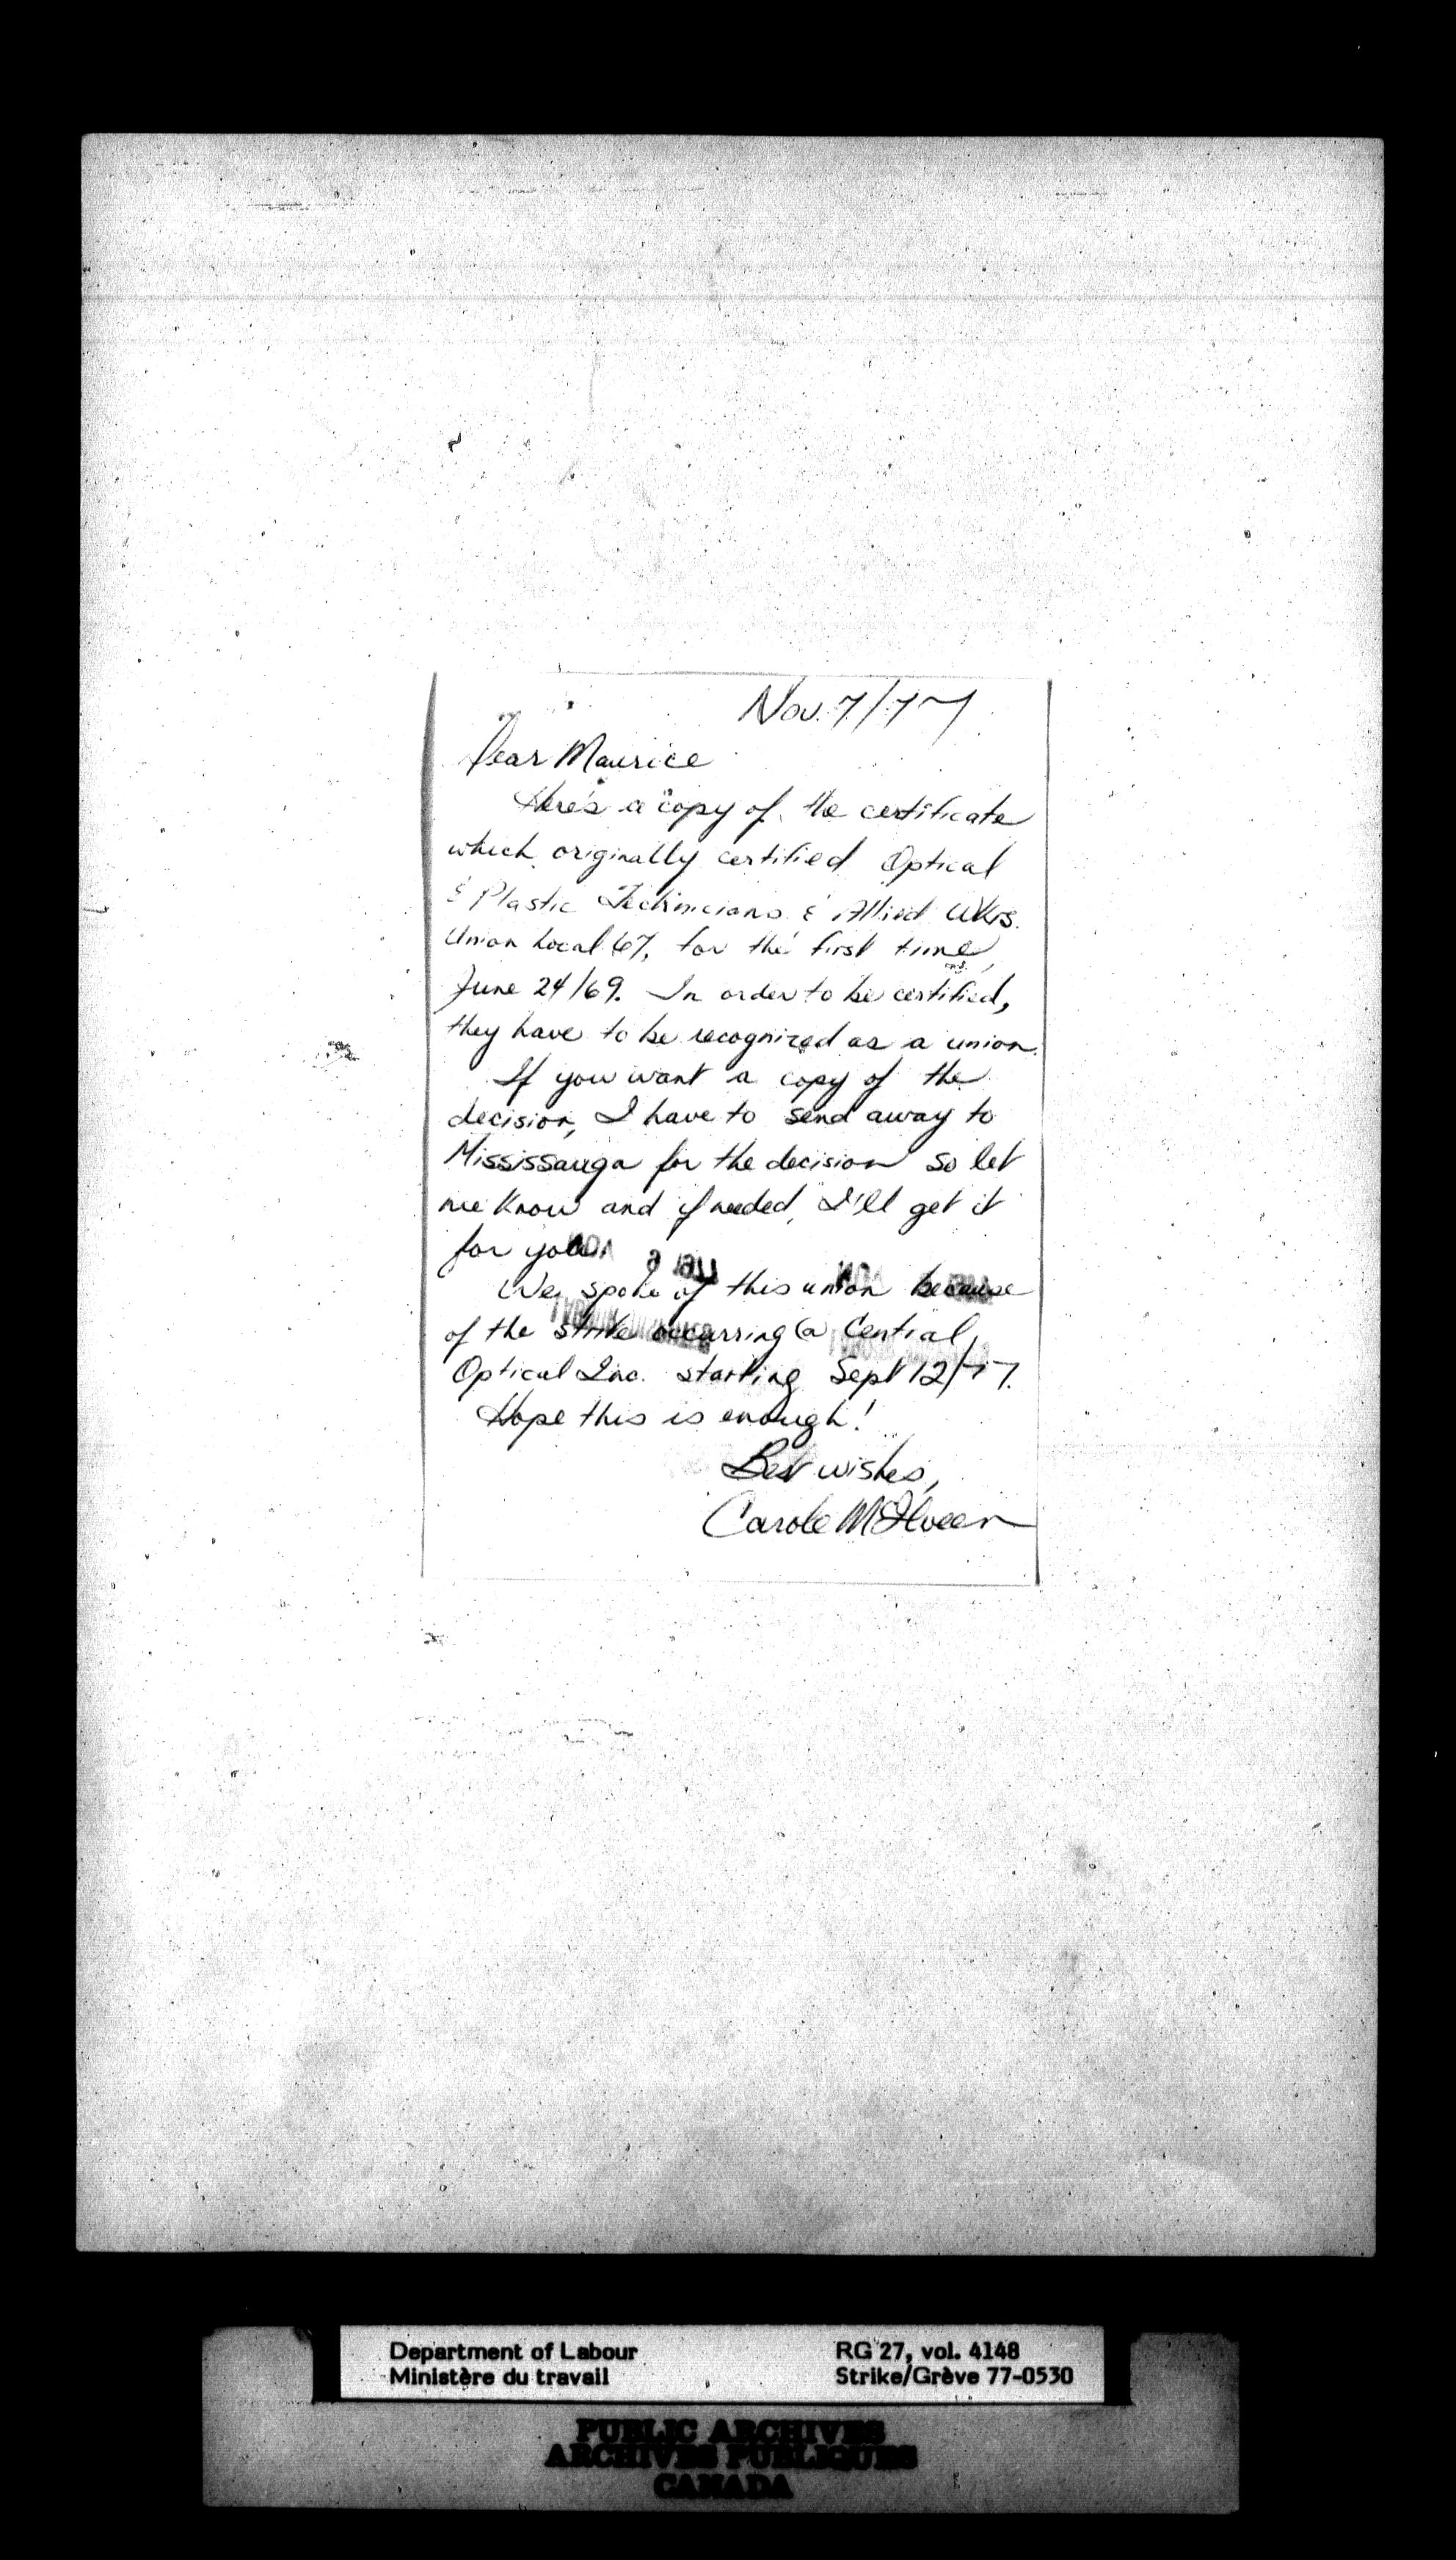 Nov. 7/77
Dear Maurice
Here's a copy of the certificate
which originally certified Optical
& Plastic Technicians & Allied Wkrs.
Union Local 67, for the first time,
June 24/69. In order to be certified,
they have to be recognized as a union.
If you want a copy of the
decision, I have to send away to
Mississauga for the decision so let
me know and if needed, I'll get it
for you.
We spoke of this union because
of the strike occurring @ Central
Optical Inc. starting Sept 12/77.
Hope this is enough!
Best wishes,
Carole McIlveen
Department of Labour
Ministère du travail
RG 27, vol. 4148
Strike/Grève 77-0530
PUBLIC ARCHIVES
ARCHIVES PUBLIQUES
CANADA